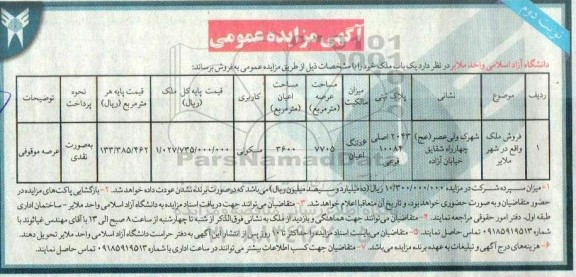 نوبت دوم
آگهی مزایده عمومی
دانشگاه آزاد اسلامی واحد ملایر در نظر دارد یک باب ملک خود را با مشخصات ذیل از طریق مزایده عمومی به فروش برساند:
ردیف | موضوع | نشانی | پلاک ثبتی | میزان مالکیت | مساحت عرصه (مترمربع) | مساحت اعیان (مترمربع) | کاربری | قیمت پایه کل ملک (ریال) | قیمت پایه هر مترمربع (ریال) | نحوه پرداخت | توضیحات
۱ | فروش ملک واقع در شهر ملایر | شهرک ولی‌عصر(عج) چهارراه شقایق خیابان آزاده | ۲۰۴۳ اصلی ۱۰۰۸۴ فرعی | ۶دانگ اعیان | ۷۷۰۵ | ۳۶۰۰ | مسکونی | ۱/۰۲۷/۷۳۵/۰۰۰/۰۰۰ | ۱۳۳/۳۸۵/۴۶۲ | به‌صورت نقدی | عرصه موقوفی
۱- میزان سپرده شرکت در مزایده ۱۰/۳۰۰/۰۰۰/۰۰۰ ریال (ده میلیارد و سیصد میلیون ریال) می‌باشد که در صورت برنده نشدن عودت داده خواهد شد. ۲- بازگشایی پاکت‌های مزایده در
حضور متقاضیان و به صورت حضوری خواهد بود، و تاریخ آن متعاقبا اعلام خواهد شد. ۳- متقاضیان می‌توانند جهت دریافت اسناد مزایده به دانشگاه آزاد اسلامی واحد ملایر - ساختمان اداری
طبقه اول، دفتر امور حقوقی مراجعه نمایند. ۴- متقاضیان می‌توانند جهت هماهنگی و بازدید از ملک به نشانی فوق الذکر از شنبه تا چهارشنبه از ساعت ۸ صبح الی ۱۳ با آقای مهندس غیاثوند با
شماره ۰۹۱۸۵۹۱۹۵۱۳ تماس حاصل نمایند. ۵- متقاضیان می‌بایست اسناد مزایده را حداکثر تا ۱۰ روز پس از انتشار این آگهی به دفتر حراست دانشگاه آزاد اسلامی واحد ملایر تحویل دهند.
۶- هزینه‌های درج آگهی و تبلیغات به عهده برنده مزایده می‌باشد. ۷- متقاضیان جهت کسب اطلاعات بیشتر می‌توانند در ساعت اداری با شماره ۰۹۱۸۵۹۱۹۵۱۳ تماس حاصل نمایند.
ParsNamadData